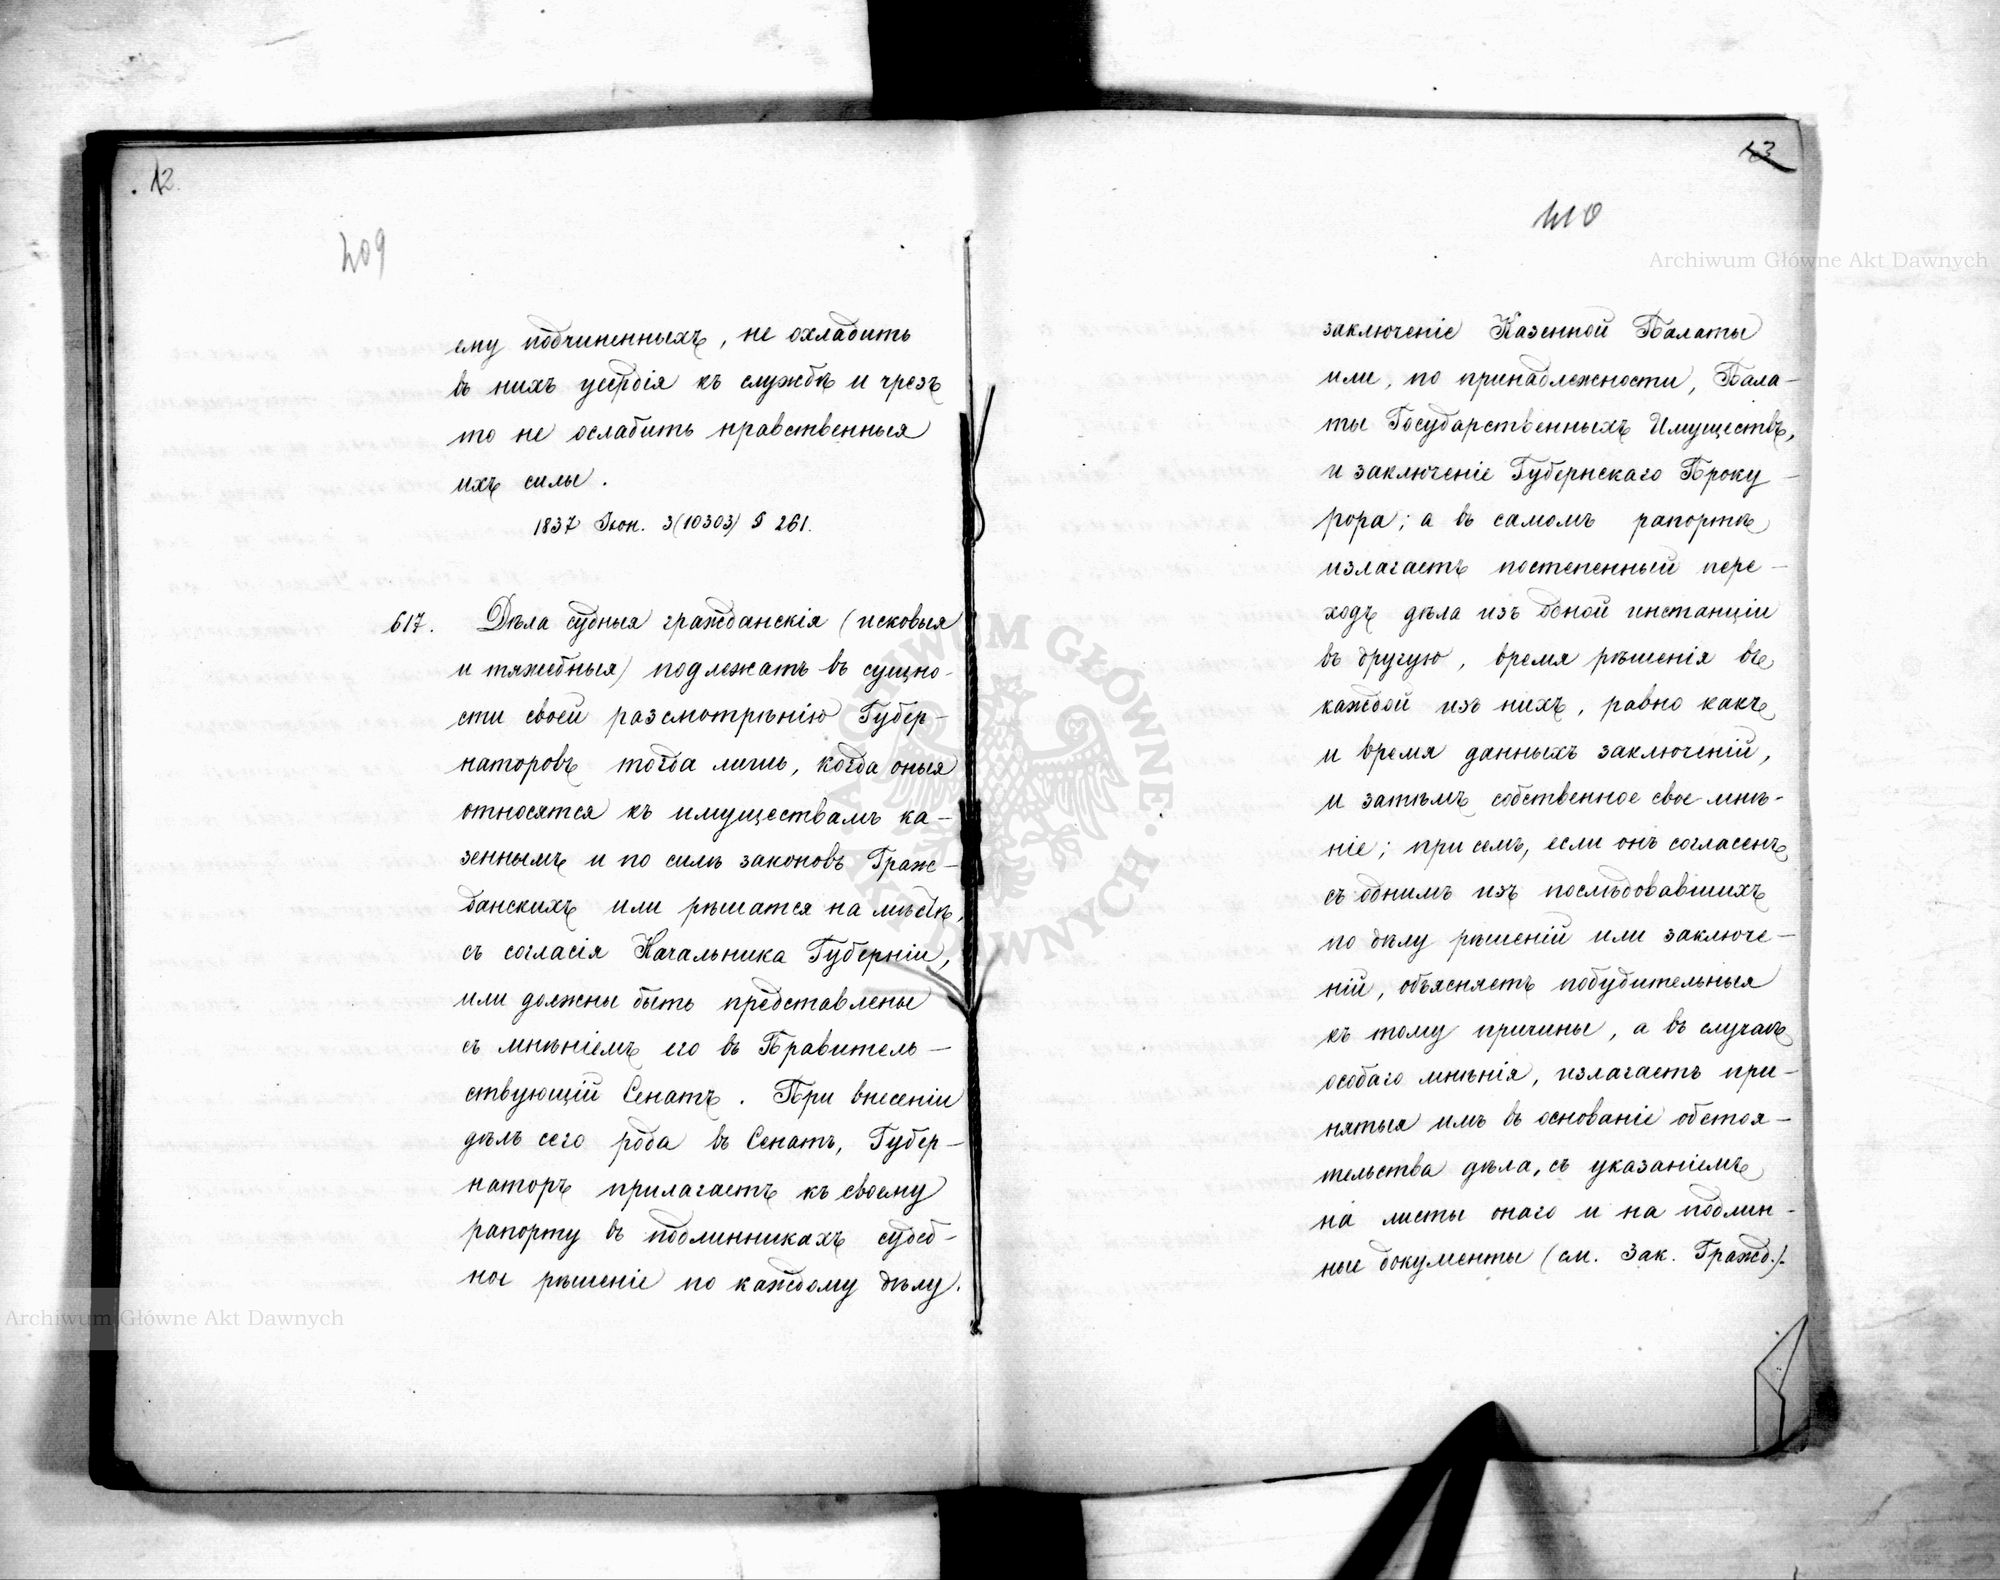 12.
409
ему подчиненныхъ, не охладить
въ нихъ усердія къ службѣ и чрезъ
то не ослабить нравственныя
ихъ силы.
1837 Іюн. 3 (10303) § 261.
617. Дѣла судныя гражданскія (исковыя
и тяжебныя) подлежатъ въ сущно-
сти своей разсмотрѣнію Губер-
наторовъ тогда лишь, когда оныя
относятся къ имуществамъ ка-
зеннымъ и по силѣ законовъ Граж-
данскихъ или рѣшатся на мѣстѣ,
съ согласія Начальника Губерніи,
или должны быть представлены
съ мнѣніемъ его въ Правитель-
ствующій Сенатъ. При внесеніи
дѣлъ сего рода въ Сенатъ, Губер-
наторъ прилагаетъ къ своему
рапорту въ подлинникахъ судеб-
ное рѣшеніе по каждому дѣлу.
13
410
заключеніе Казенной Палаты
или, по принадлежности, Пала-
ты Государственныхъ Имуществъ,
и заключеніе Губернскаго Проку-
рора; а въ самомъ рапортѣ
излагаетъ постепенный пере-
ходъ дѣла изъ одной инстанціи
въ другую, время рѣшенія въ
каждой изъ нихъ, равно какъ
и время данныхъ заключеній,
и затѣмъ собственное свое мнѣ-
ніе; при семъ, если онъ согласенъ
съ однимъ изъ послѣдовавшихъ
по дѣлу рѣшеній или заключе-
ній, объясняетъ побудительныя
къ тому причины, а въ случаѣ
особаго мнѣнія, излагаетъ при-
нятыя имъ въ основаніе обстоя-
тельства дѣла, съ указаніемъ
на листы онаго и на подлин-
ные документы (см. Зак. Гражд.).
Archiwum Główne Akt Dawnych
ARCHIWUM GŁÓWNE AKT DAWNYCH
Archiwum Główne Akt Dawnych